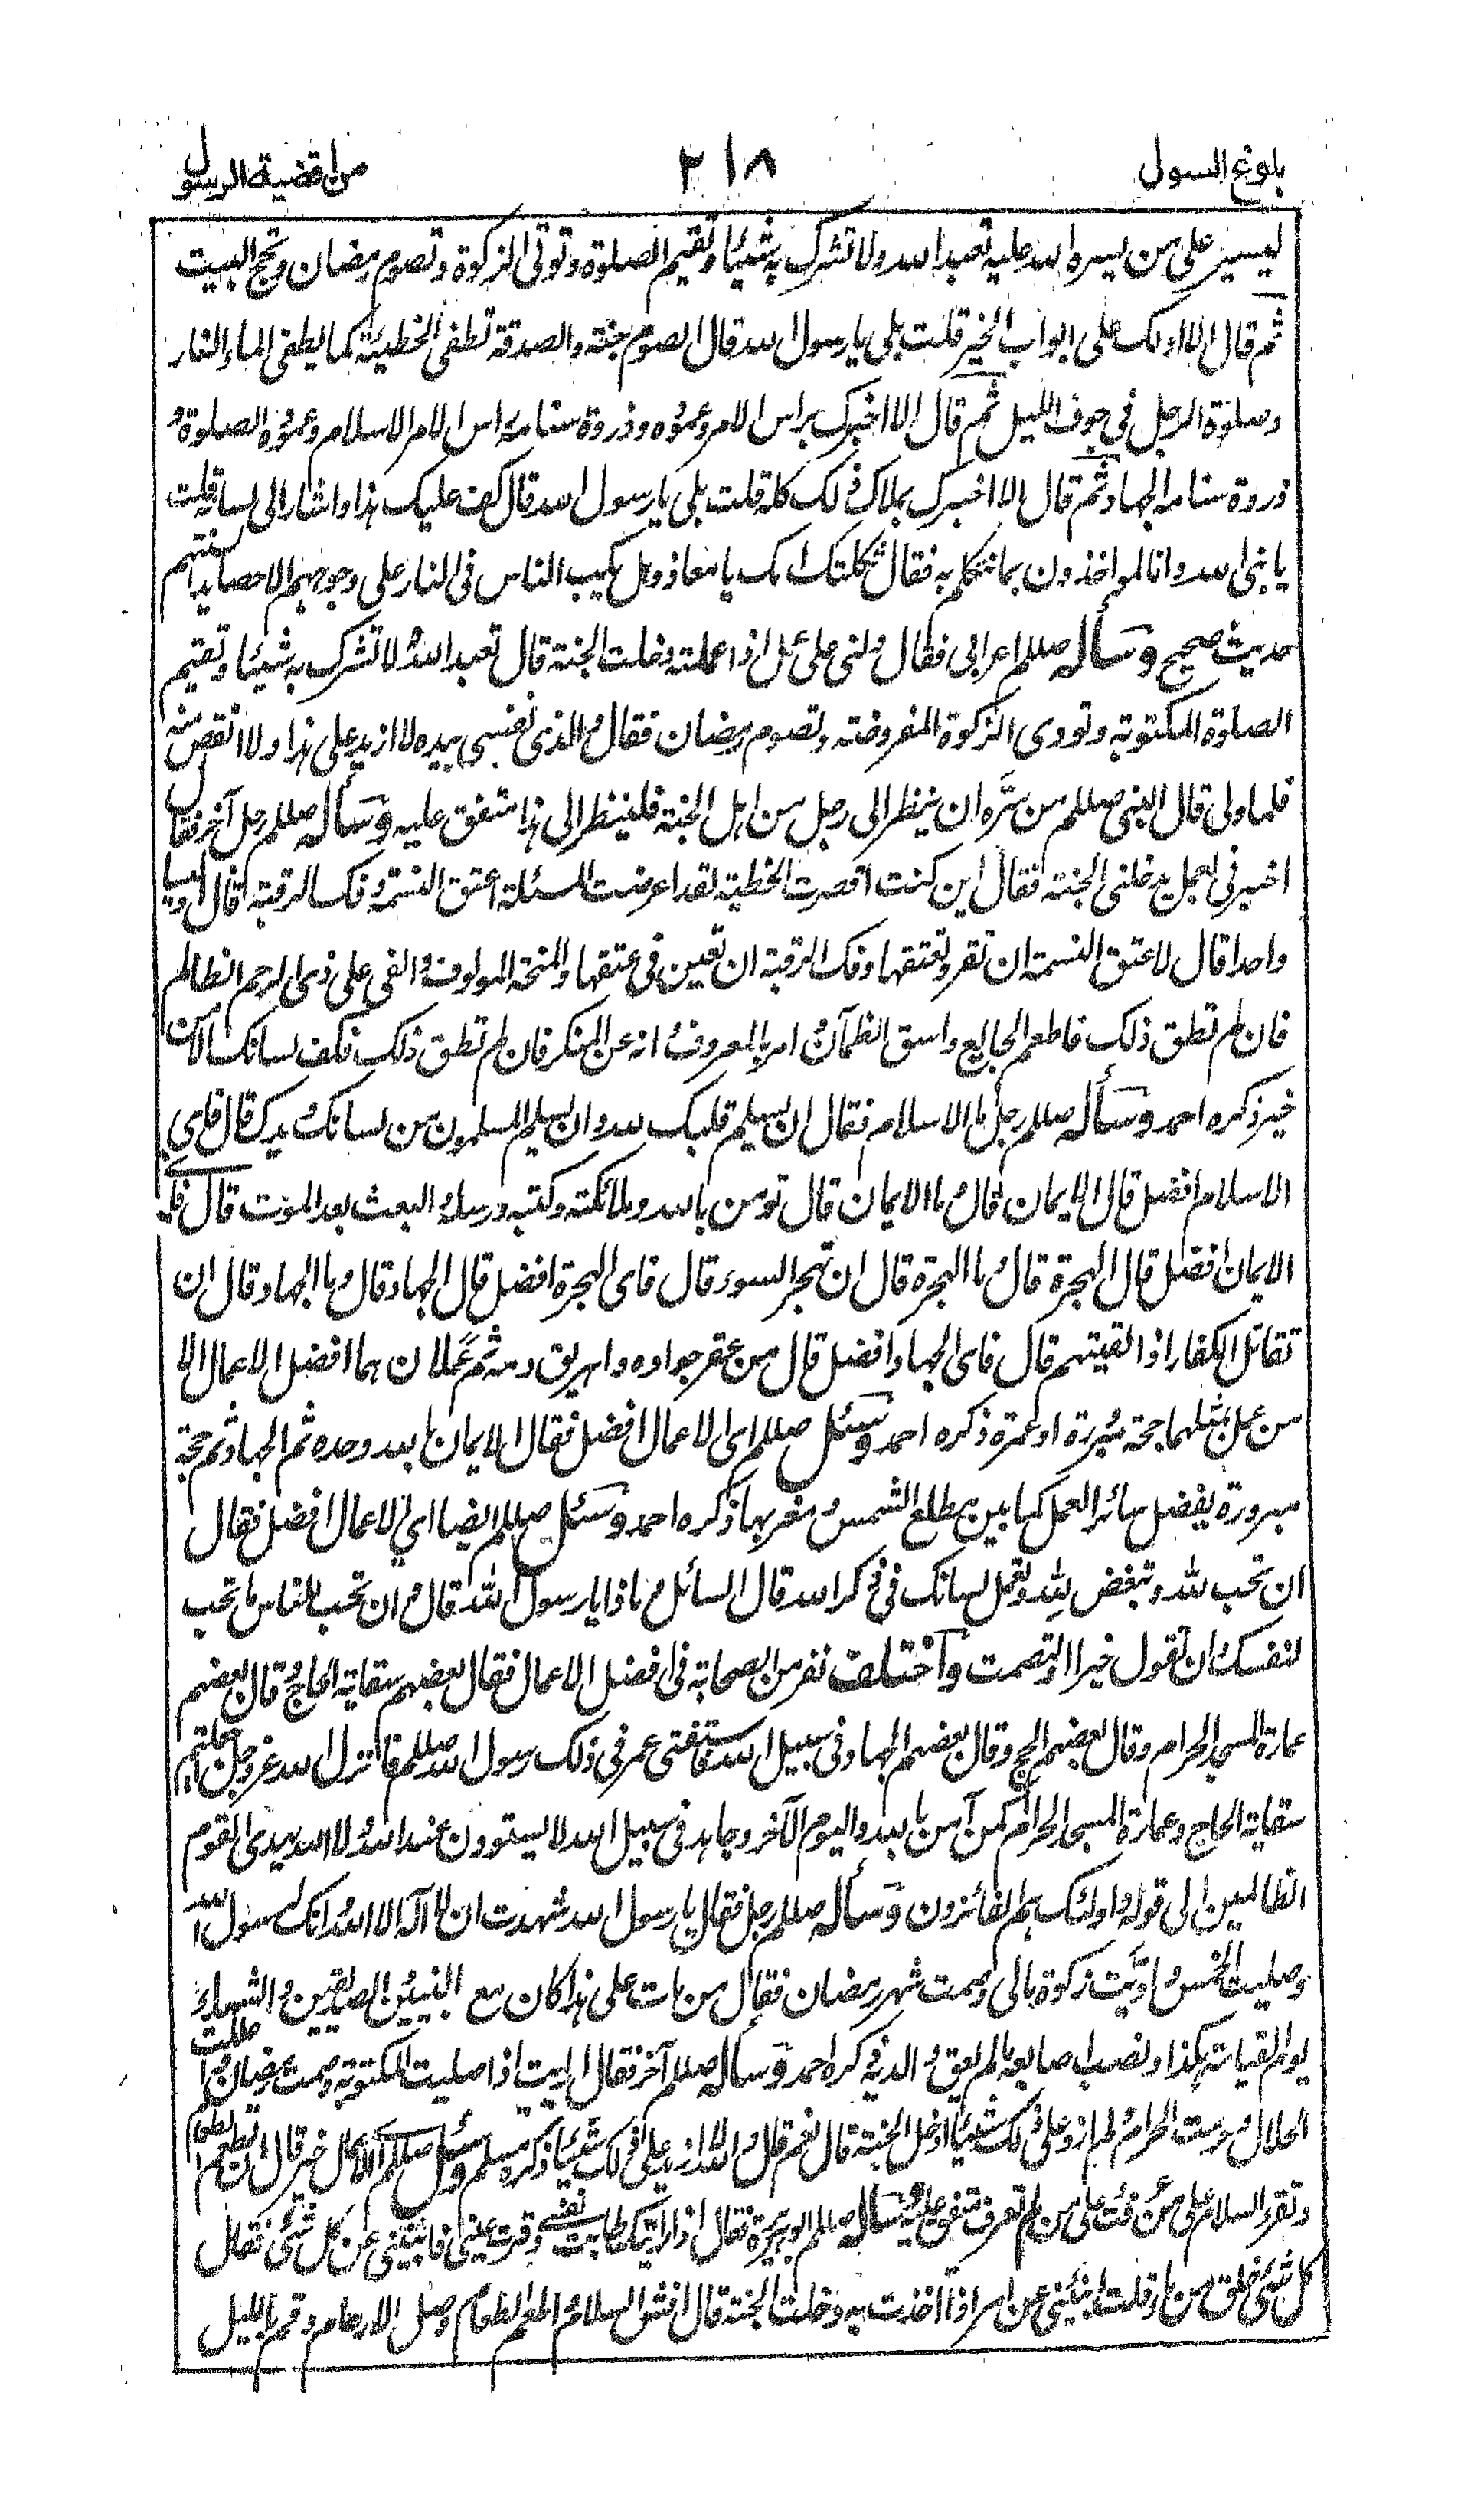 بلوغ السول
٢١٨
من اقضية الرسول
ليسير على من يسره الله عليه تعبد الله ولا تشرك به شيئا وتقيم الصلوة وتوتى الزكوة وتصوم رمضان وتحج البيت
ثم قال الا ادلك على ابواب الخير قلت بلى يا رسول الله قال الصوم جنة والصدقة تطفى الخطيئة كما يطفى الماء النار
وصلوة الرجل فى جوف الليل ثم قال الا اخبرك براس الامر وعموده وذروة سنامه راس الامر الاسلام وعموده الصلوة و
ذروة سنامه الجهاد ثم قال الا اخبرك بملاك ذلك كله قلت بلى يا رسول الله قال كف عليك هذا واشار الى لسانه قلت
يا نبى الله وانا لمواخذون بما نتكلم به فقال ثكلتك امك يا معاذ وهل يكب الناس فى النار على وجوههم الا حصايد السنتهم
حديث صحيح وسأله صللم اعرابى فقال دلنى على عمل اذا عملته دخلت الجنة قال تعبد الله ولا تشرك به شيئا وتقيم
الصلوة المكتوبة وتودى الزكوة المفروضة وتصوم رمضان فقال والذى نفسى بيده لا ازيد على هذا ولا انقص منه
فلما ولى قال النبى صللم من سره ان ينظر الى رجل من اهل الجنة فلينظر الى هذا متفق عليه وسأله صللم رجل آخر فقال
اخبرنى بعمل يدخلنى الجنة فقال لين كنت اقصرت الخطبة لقد اعرضت المسئلة اعتق النسمة وفك الرقبة قال اوليسا
واحدا قال لا عتق النسمة ان تفرد بعتقها وفك الرقبة ان تعين فى عتقها والمنحة الوكوف والفى على ذى الرحم الظالم
فان لم تطق ذلك فاطعم الجايع واسق الظمآن وامر بالمعروف وانه عن المنكر فان لم تطق ذلك فكف لسانك الا من
خير ذكره احمد وسأله صللم رجل ما الاسلام فقال ان يسلم قلبك لله وان يسلم المسلمون من لسانك ويدك قال فاى
الاسلام افضل قال الايمان قال وما الايمان قال تومن بالله وملائكته وكتبه ورسله والبعث بعد الموت قال فاى
الايمان افضل قال الهجرة قال وما الهجرة قال ان تهجر السوء قال فاى الهجرة افضل قال الجهاد قال وما الجهاد قال ان
تقاتل الكفار اذا لقيتهم قال فاى الجهاد افضل قال من عقر جواده واهريق دمه ثم عملان هما افضل الاعمال الا
من عمل بمثلهما حجة مبررة او عمرة ذكره احمد وسئل صللم اى الاعمال افضل فقال الايمان بالله وحده ثم الجهاد ثم حجة
مبرورة يفضل سائر العمل كما بين مطلع الشمس ومغربها ذكره احمد وسئل صللم ايضا اى الاعمال افضل فقال
ان تحب لله وتبغض لله وتعمل لسانك فى ذكر الله قال السائل وما ذا يا رسول الله قال وان تحب للناس ما تحب
لنفسك وان تقول خيرا او تصمت واختلف نفر من الصحابة فى افضل الاعمال فقال بعضهم سقاية الحاج وقال بعضهم
عمارة المسجد الحرام وقال بعضهم الحج وقال بعضهم الجهاد فى سبيل الله فاستفتى عمر فى ذلك رسول الله صللم فانزل الله عز وجل اجعلتم
سقاية الحاج وعمارة المسجد الحرام كمن آمن بالله واليوم الآخر وجاهد فى سبيل الله لا يستوون عند الله والله لا يهدى القوم
الظالمين الى قوله واولئك هم الفائزون وسأله صللم رجل فقال يا رسول الله شهدت ان لا آله الا الله وانك رسول الله
وصليت الخمس واديت زكوة مالى وصمت شهر رمضان فقال من مات على هذا كان مع النبيين والصديقين والشهداء
يوم القيامة هكذا ونصب اصابعه ما لم يعق والديه ذكره احمد وسأله صللم آخر فقال ارايت اذا صليت المكتوبة وصمت رمضان واحللت
الحلال وحرمت الحرام ولم ازد على ذلك شيئا ادخل الجنة قال نعم قال والله لا ازيد على ذلك شيئا ذكره مسلم وسئل صللم اى الاعمال خير قال ان تطعم الطعام
وتقرء السلام على من عرفت وعلى من لم تعرف متفق عليه وسأله صللم ابو هريرة فقال اذا رايتك طابت نفسى وقرت عينى فانبئنى عن كل شئ فقال
كل شئ خلق من ماء قلت انبئنى عن امر اذا اخذت به دخلت الجنة قال افش السلام واطعم الطعام وصل الارحام وقم بالليل